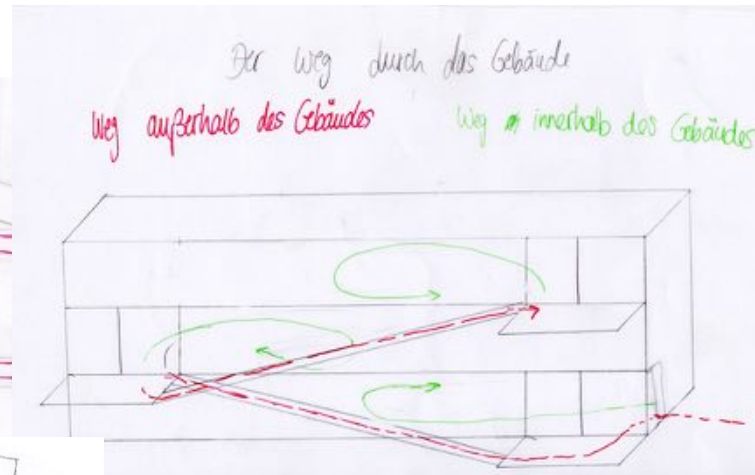 Der Weg durch das Gebäude
Weg außerhalb des Gebäudes
Weg innerhalb des Gebäudes